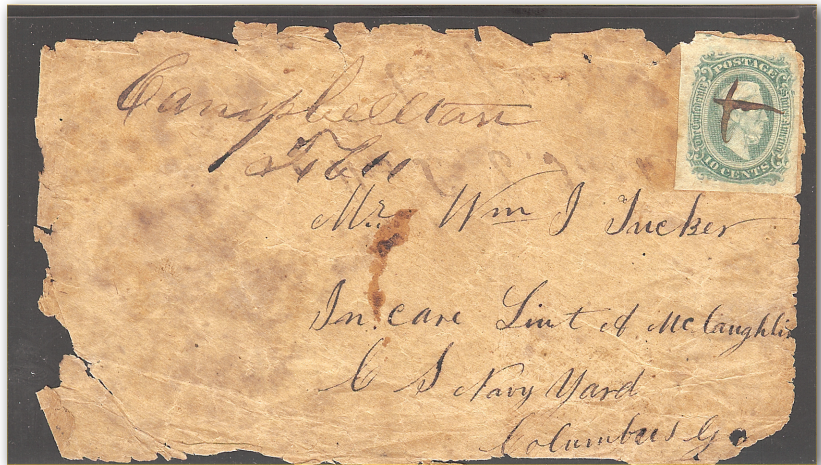 Campbellton
Feb 11
POSTAGE
The Confederate States of America
10 CENTS
Mr. Wm J Tucker
In care Liut A. McLaughlin
C S Navy Yard
Columbus Ga